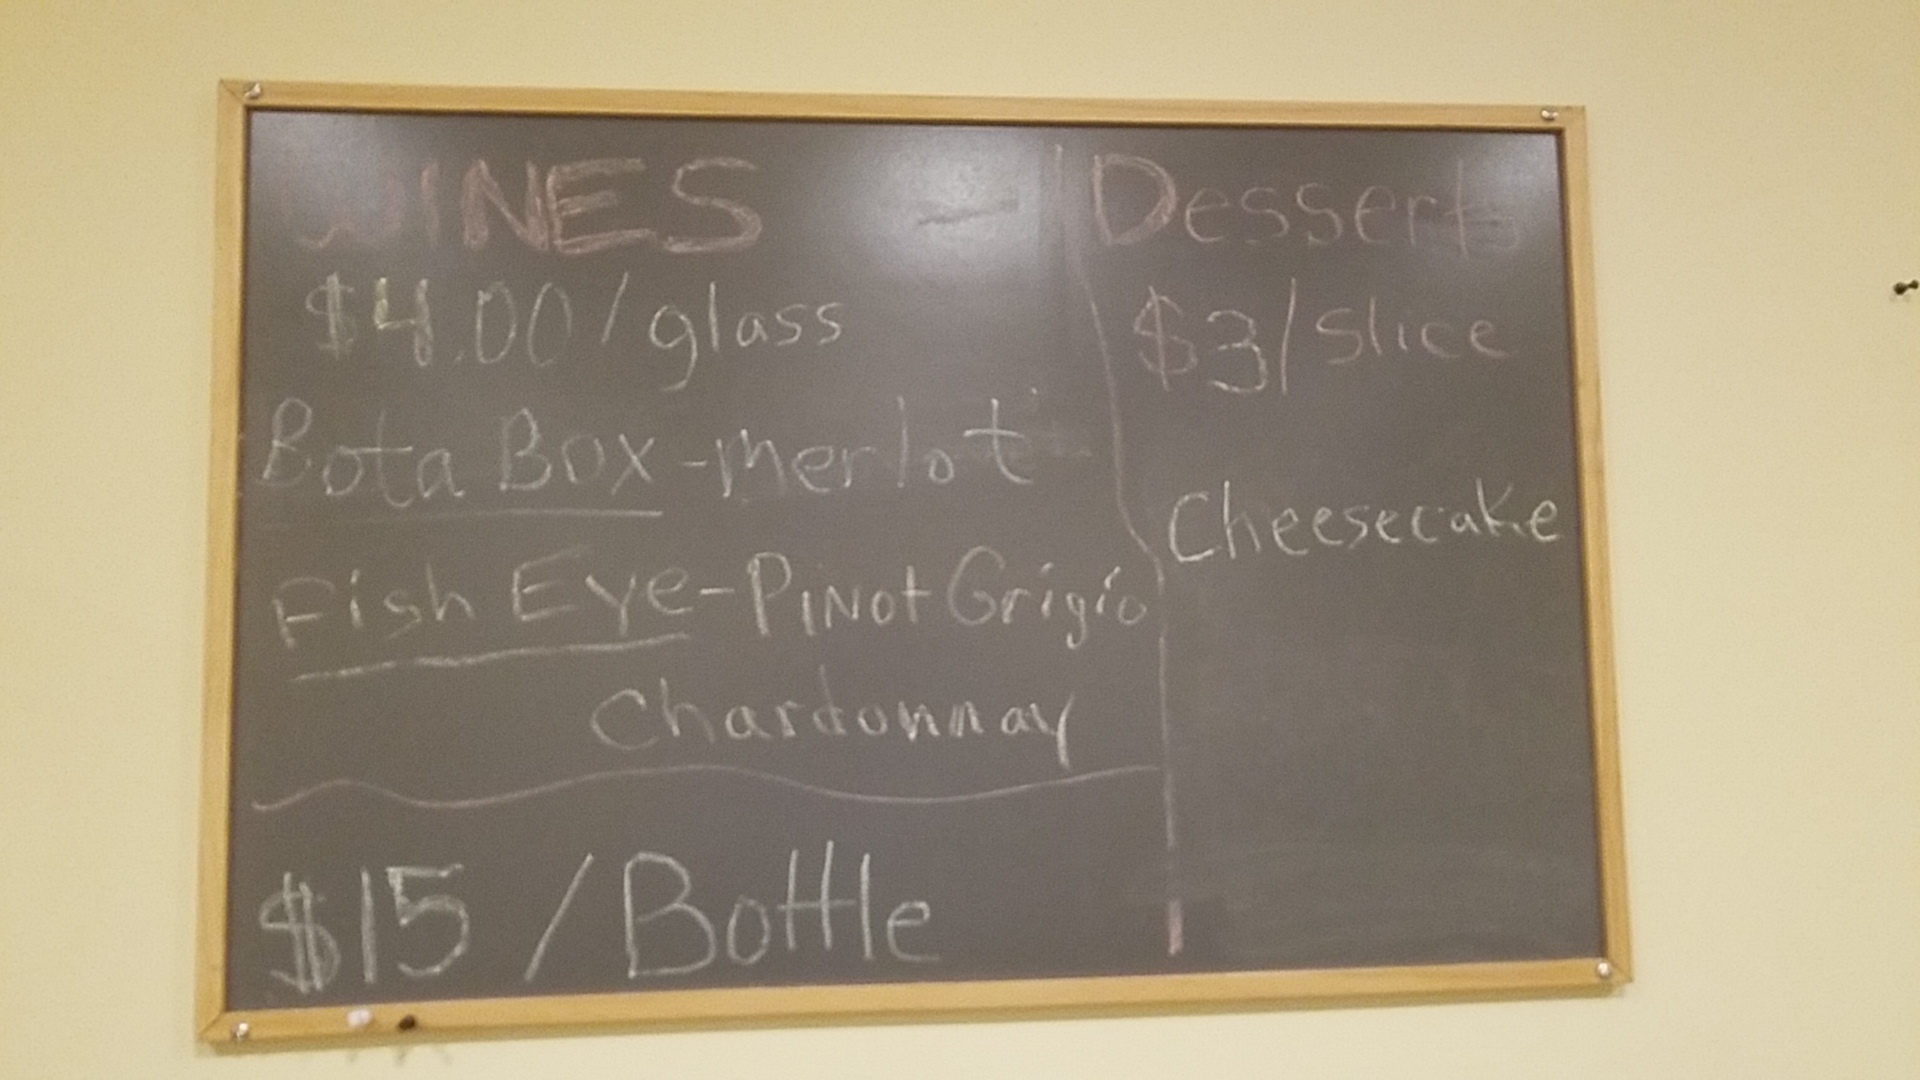 WINES -
$4.00/glass
Bota Box-merlot
Fish Eye-Pinot Grigio
Chardonnay
$15/Bottle
Desserts
$3/slice
Cheesecake